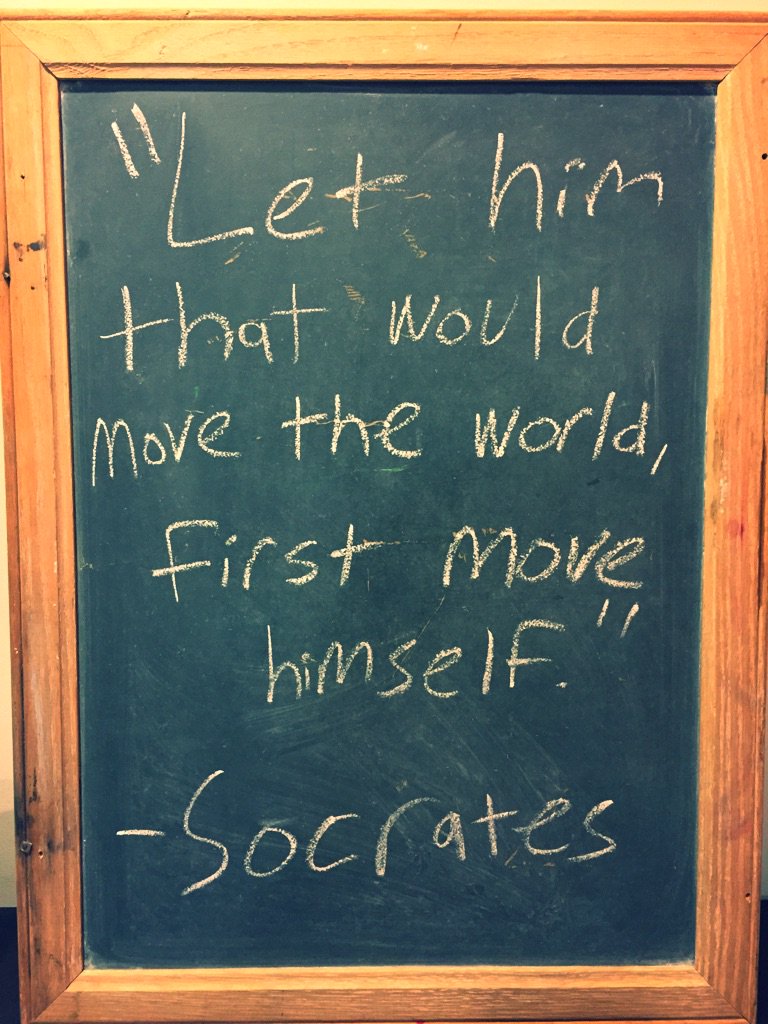 "Let him
that would
move the world,
first move
himself."
-Socrates